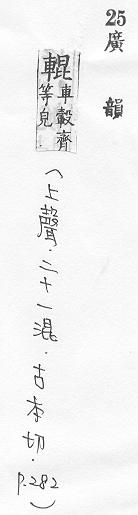 25
廣韻
輥車轂齊等皃
(上聲.二十一混.古本切.p.282)